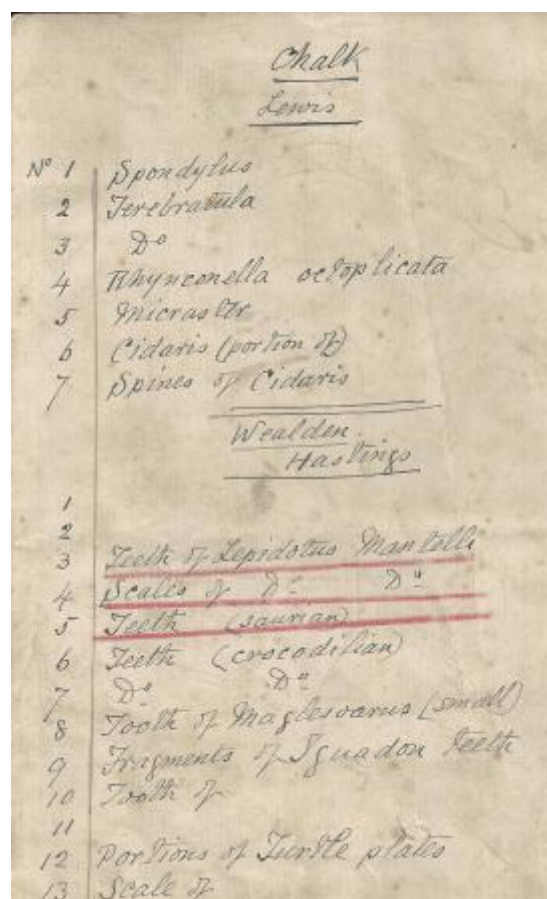 Chalk
Lewis
No 1 Spondylus
2 Terebratula
3 Do
4 Rhynconella octoplicata
5 Micraster
6 Cidaris (portion of)
7 Spines of Cidaris
Wealden
Hastings
1
2
3 Teeth of Lepidotus Mantelli
4 Scales of Do Do
5 Teeth (saurian)
6 Teeth (crocodilian)
7 Do Do
8 Tooth of (small)
9 Fragments of Teeth
10 Tooth of
11
12 Portions of Turtle plates
13 Scale of